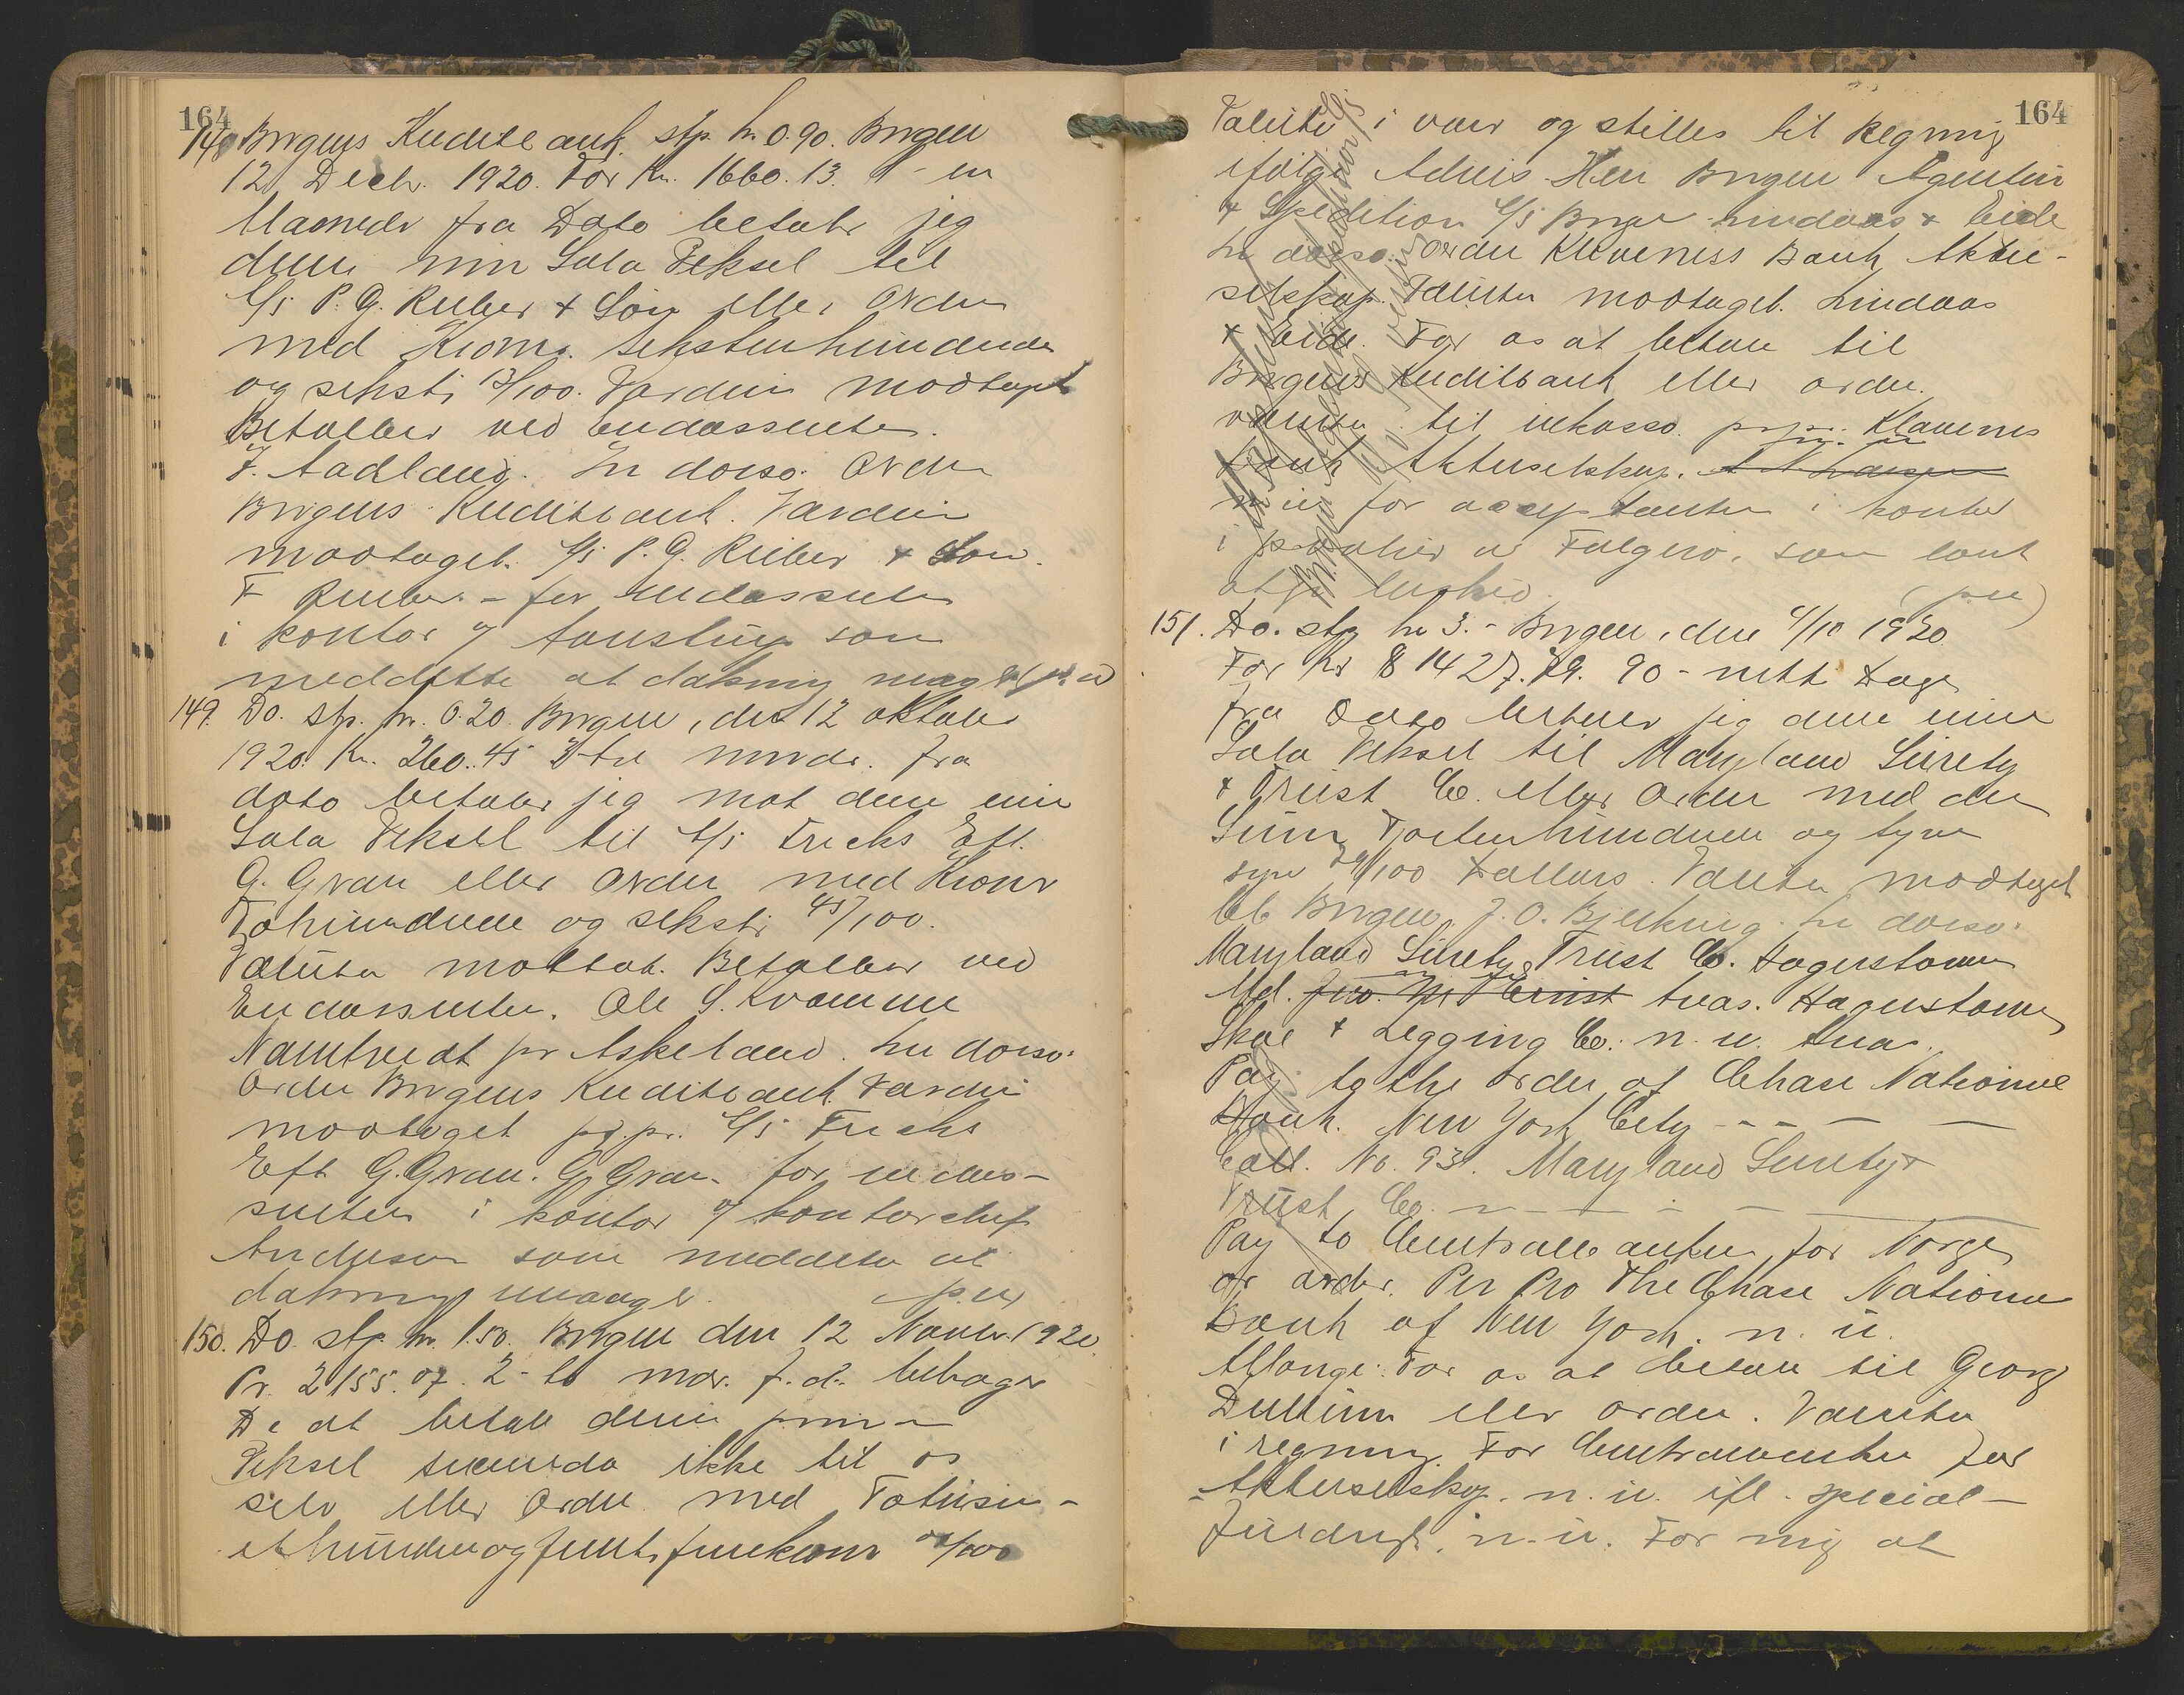 164
148 Bergens Kreditbank. stp. kr. 0.90. Bergen
12 Decb. 1920. For Kr. 1660.13. 1 - en
Maaned fra Dato betaler jeg
denne min Sola Veksel til
A/S P. G. Rieber & Søn eller Ordre
med Kroner sekstenhundrede
og seksti 13/100. Værdien modtaget
Betalbar ved Endossenten.
J. Aadland. In dorso. Ordre
Bergens Kreditbank. Værdien
modtaget. A/S P. G. Rieber & Søn.
F Rieber. - for endossenten
i kontor v/ som
meddelte at dækning mangl p.u.
149. Do. stp. kr. 0.20. Bergen, den 12 oktober
1920. Kr. 260.45 3-tre mndr. fra
dato betaler jeg mot denne min
Sola Veksel til A/S Frichs Eft.
G. Gran eller Ordre med Kroner
Tohundrede og seksti 45/100.
Valuta mottat. Betalbar ved
Endossenten. Ole S. Kvamme
Namtvedt pr Askeland. In dorso:
Ordre Bergens Kreditbank Værdi
modtaget pr.pr. A/S Frichs
Eft G. Gran. G. Gran. for endos-
senten i kontor v/ kontorchef
Andersen som meddelte at
dækning mangler. p.u.
150. Do. stp. kr. 1.50. Bergen den 12 Novbr. 1920.
Kr. 2155.07. 2 - to mdr. f. d. behager
De at betale denne prima
Veksel secunda ikke til os
selv eller Ordre med Totusin-
ethundreogfemtifemkroner 07/100
164
Valuta i varer og stilles til Regning
ifølge Advis. Herr Bergen Agentur
& Spedition A/S Bergen Lindaas & Eide
In dorso: Ordre Klaveness Bank Aktie-
selskap. Valuta modtaget. Lindaas
& Eide. For os at betale til
Bergens Kreditbank eller ordre.
værdien til inkasso. pr.pr. Klaveness
Bank Aktieselskap.
n.u. for acceptanten i kontor
i av Falgerø. som lovt
at (p.u.)
151. Do. stp kr 3.- Bergen, den 4/10 1920
For Kr $ 1427.79. 90 - nitti Dage
fra Dato betaler jeg denne min
Sola Veksel til Maryland Surety
& Trust Co. eller Ordre med den
Sum Fjortenhundrede og tyve
syv 79/100 Dollars. Valuta modtaget
Bergen, J. O. Bjerking. In dorso.
Maryland Surety & Trust Co. Hagerstown
Md. Jno. M. Ernst treas. Hagerstown
Shoe & Legging Co. n. u. treas.
Pay to the order of Chase National
Bank. New York City - - - -
Coll. No. 931. Maryland Surety &
Trust Co. - - - - -
Pay to Centralbanken for Norge
or order. Per Pro The Chase National
Bank of New York. n. u.
Allonge: For os at betale til Georg
Dullum eller ordre. Valuta
i regning. For Centralbanken for
Aktieselskap. n. u. ifl. special-
fuldmgt. n. u. For mig at